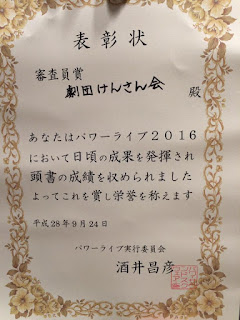 表彰状
審査員賞
劇団けんさん会 殿
あなたはパワーライブ2016
において日頃の成果を発揮され
頭書の成績を収められました
よってこれを賞し栄誉を称えます
平成28年9月24日
パワーライブ実行委員会
酒井昌彦